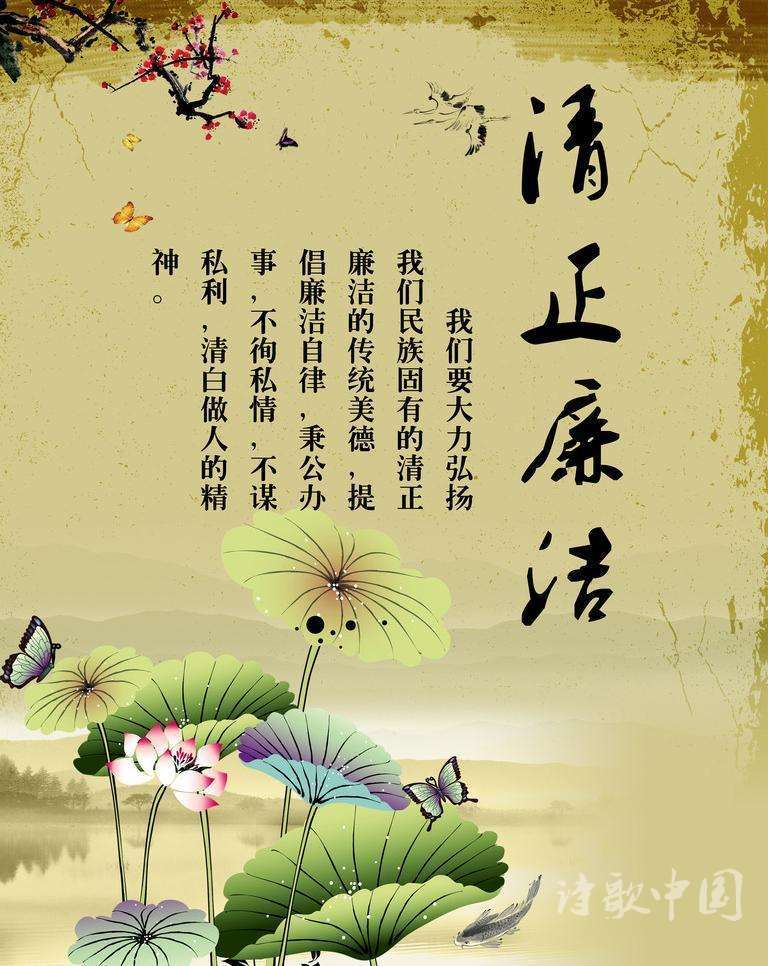 清正廉洁
我们要大力弘扬
我们民族固有的清正
廉洁的传统美德,提
倡廉洁自律,秉公办
事,不徇私情,不谋
私利,清白做人的精
神。
诗歌中国